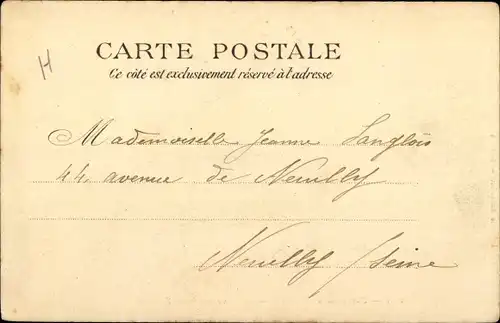 H
CARTE POSTALE
Ce côté est exclusivement réservé à l'adresse
Mademoiselle Jeanne Langlois
44. avenue de Neuilly
Neuilly /seine